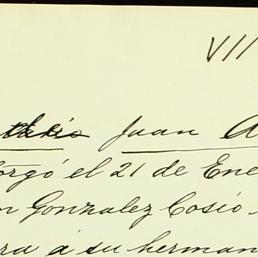 VII
Juan A
orgó el 21 de Ene
n Gonzalez Cosio
ra á su herman